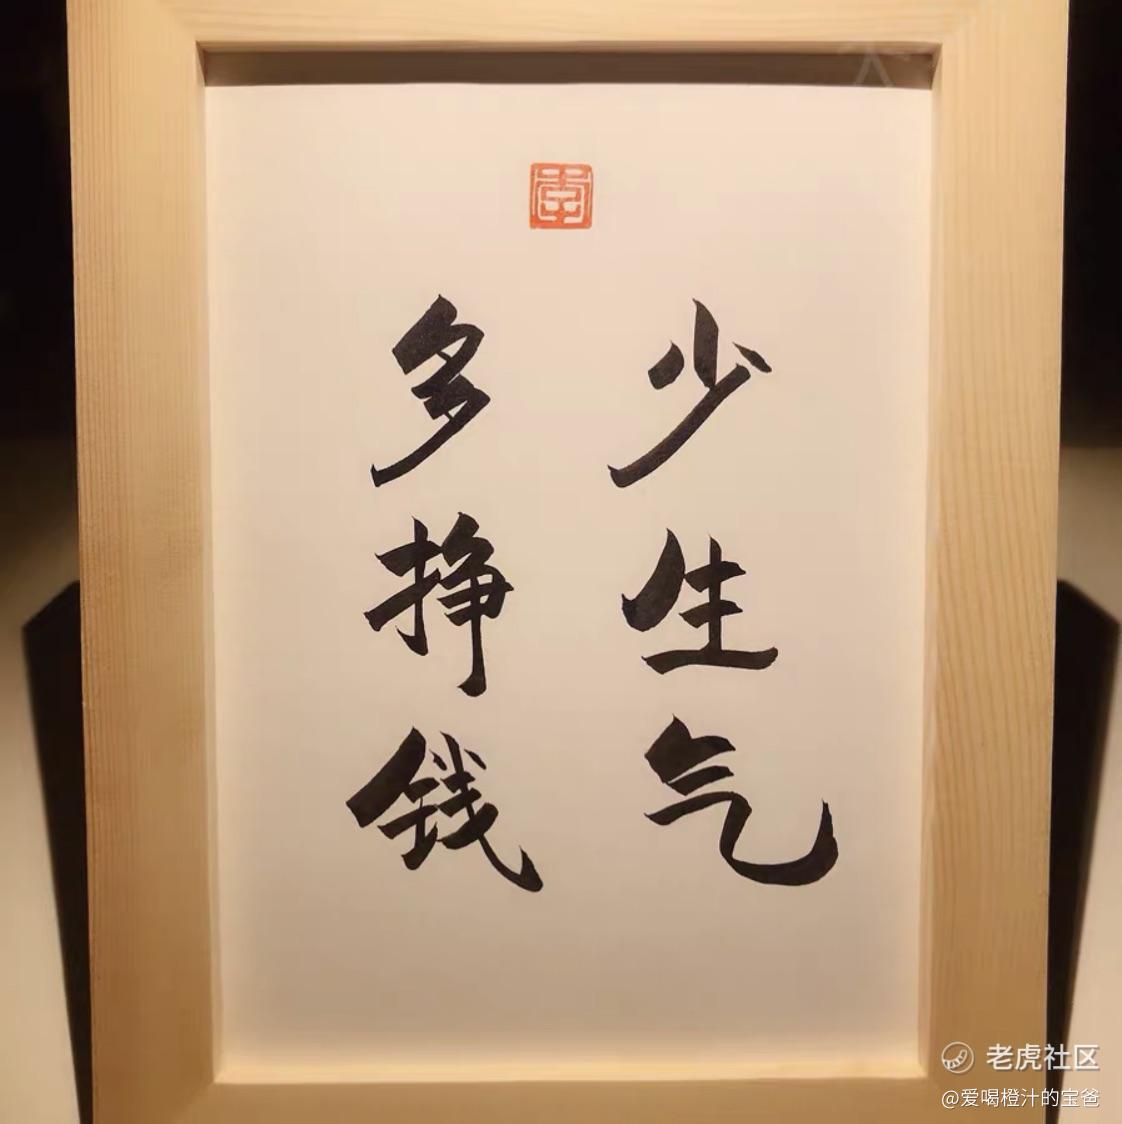 少生气
多挣钱
老虎社区
@爱喝橙汁的宝爸